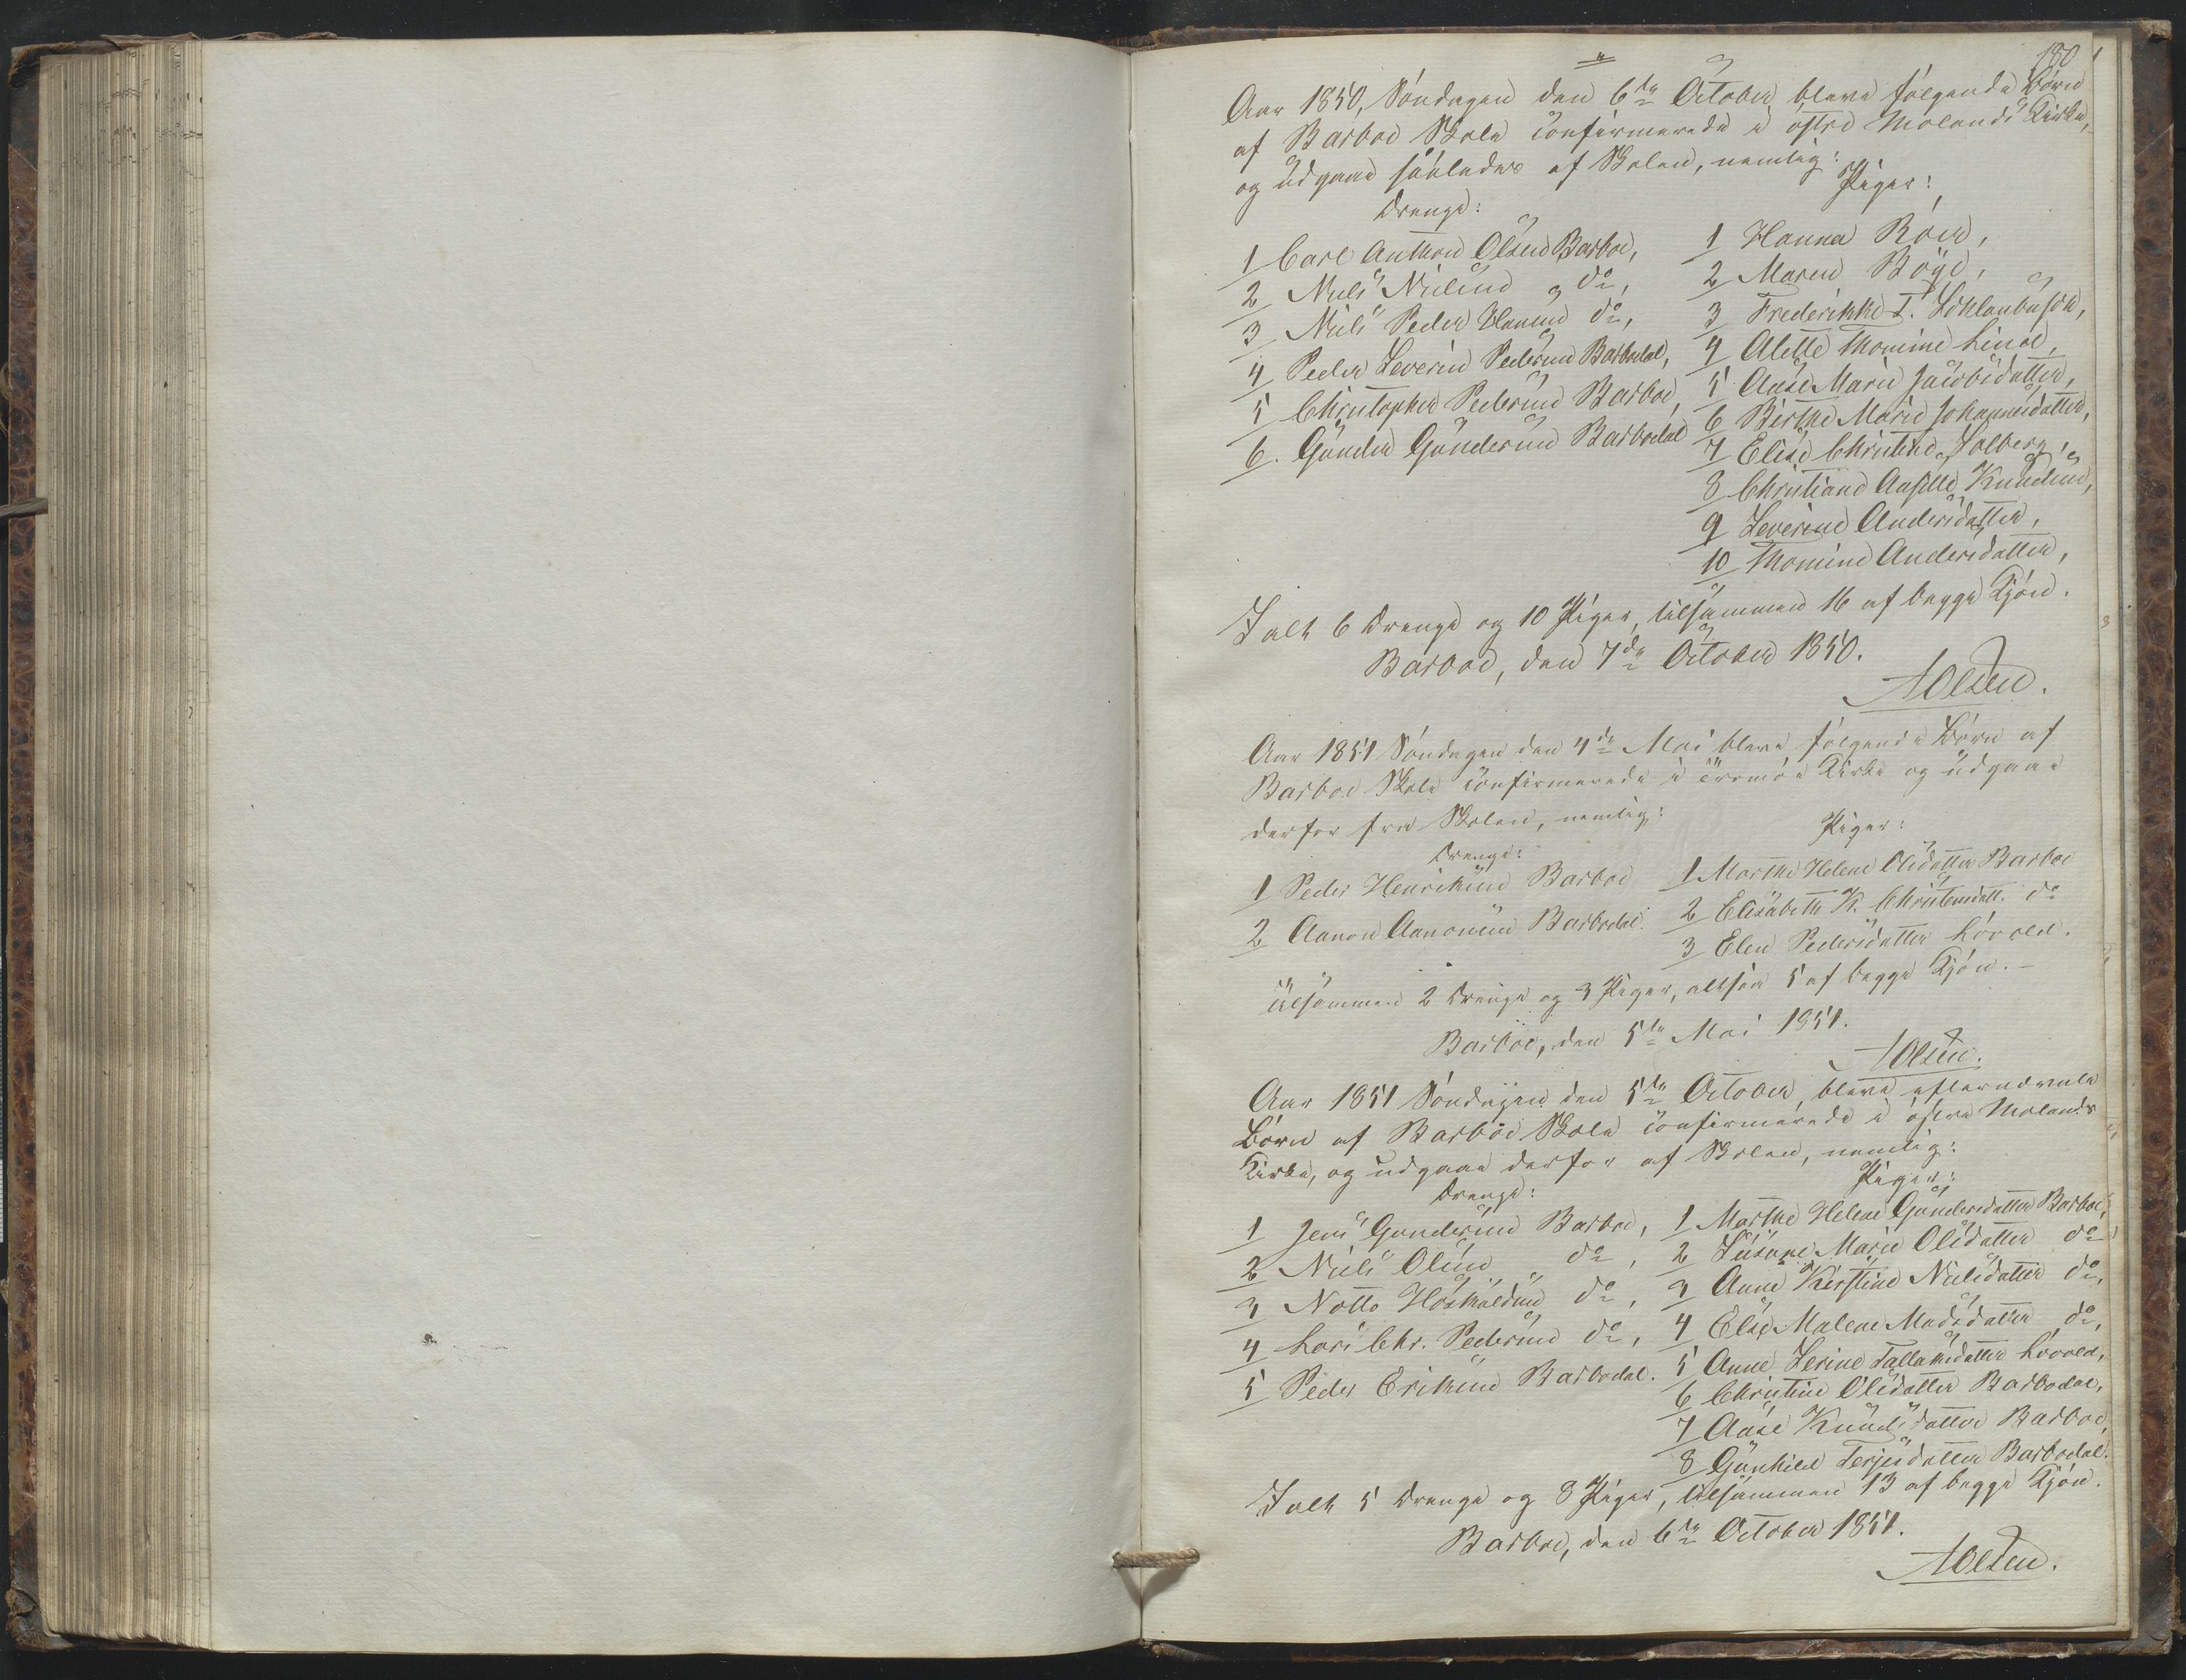 180
Aar 1850, Søndagen den 6te October bleve følgende Børn
af Barboe Skole confirmerede i østre Molands Kirke,
og udgaae saaledes af Skolen, nemlig:
Drenge:
1 Carl Anthon Olsen Barboe,
2 Niels Nielsen do,
3 Niels Peder Hansen do,
4 Peder Severin Pedersen Barbodal,
5 Christopher Pedersen Barboe,
6. Gunder Gundersen Barbodal
Piger:
1 Hanna Röer,
2 Maren Böye,
3 Frederikke T.
4 Alette Thomine Linöe,
5 Aase Marie Jacobsdatter,
6 Birthe Marie Johannesdatter,
7 Elise Christine Solberg,
8 Christiane Knudsen,
9 Severine Andersdatter,
10 Thomine Andersdatter,
Ialt 6 Drenge og 10 Piger, tilsammen 16 af begge Kjøn.
Barboe, den 7de October 1850.
AOlsen.
Aar 1851 Søndagen den 4de Mai bleve følgende Børn af
Barboe Skole confirmerede i Tromøe Kirke og udgaae
derfor fra Skolen, nemlig:
Drenge:
1 Peder Henriksen Barboe
2 Aanon Aanonsen Barbodal.
Piger:
1 Marthe Helene Olsdatter Barboe
2 Elisabeth K. Christensdatt. do
3 Elen Pedersdatter Lövold.
Tilsammen 2 Drenge og 3 Piger, altsaa 5 af begge Kjøn. –
Barboe, den 5te Mai 1851.
AOlsen.
Aar 1851 Søndagen den 5te October, bleve efternævnte
Børn af Barboe Skole confirmerede i østre Molands
Kirke, og udgaae derfor af Skolen, nemlig:
Drenge:
1 Jens Gundersen Barboe,
2 Niels Olsen do,
3 Notto Höskoldsen do,
4 Lars Chr. Pedersen do,
5 Peder Eriksen Barbodal.
Piger:
1 Marthe Helene Gundersdatter Barboe,
2 Susane Marie Olsdatter do
3 Anne Kirstine Nielsdatter do,
4 Else Malene Madsdatter do,
5 Anne Serine Tallaksdatter Lövold,
6 Christine Olsdatter Barbodal,
7 Aase Knudsdatter Barboe,
8 Gunhild Terjesdatter Barbodal.
Ialt 5 Drenge og 8 Piger, tilsammen 13 af begge Kjøn.
Barboe, den 6te October 1851.
AOlsen.